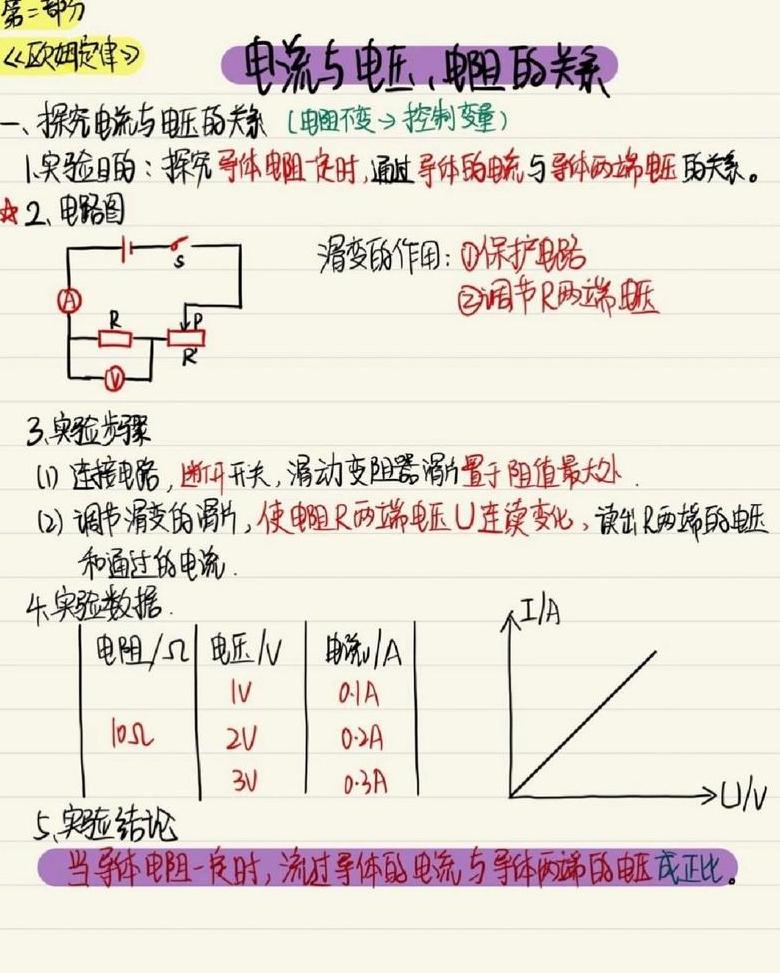 第二部分
《欧姆定律》
电流与电压、电阻的关系
一、探究电流与电压的关系（电阻不变→控制变量）
1.实验目的：探究导体电阻一定时,通过导体的电流与导体两端电压的关系。
☆2、电路图
S
滑变的作用：①保护电路
②调节R两端电压
A
R
P
R'
V
3.实验步骤
(1) 连接电路,断开开关,滑动变阻器滑片置于阻值最大处.
(2) 调节滑变的滑片,使电阻R两端电压U连续变化、读出R两端的电压
和通过的电流.
4.实验数据.
I/A
电阻/Ω 电压/V 电流/A
1V 0.1A
10Ω 2V 0.2A
3V 0.3A
U/V
5、实验结论
当导体电阻一定时,流过导体的电流与导体两端的电压成正比。